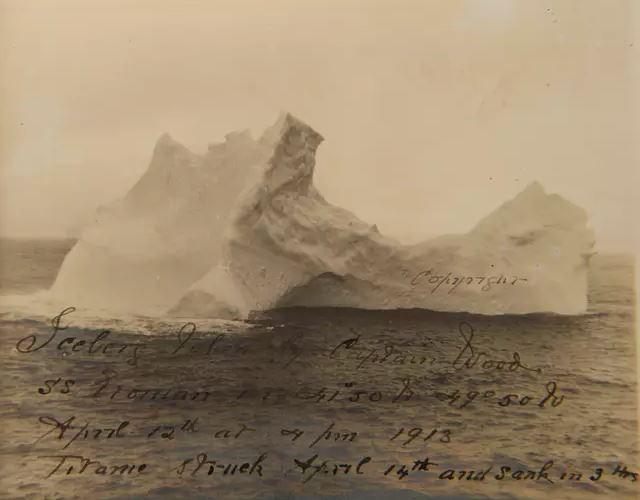 Copyright
Iceberg Taken By Captain Wood.
SS Etonian in 41°50 W 49°50 W
April 12th at 4 pm 1913
Titanic struck April 14th and sank in 3 Hrs